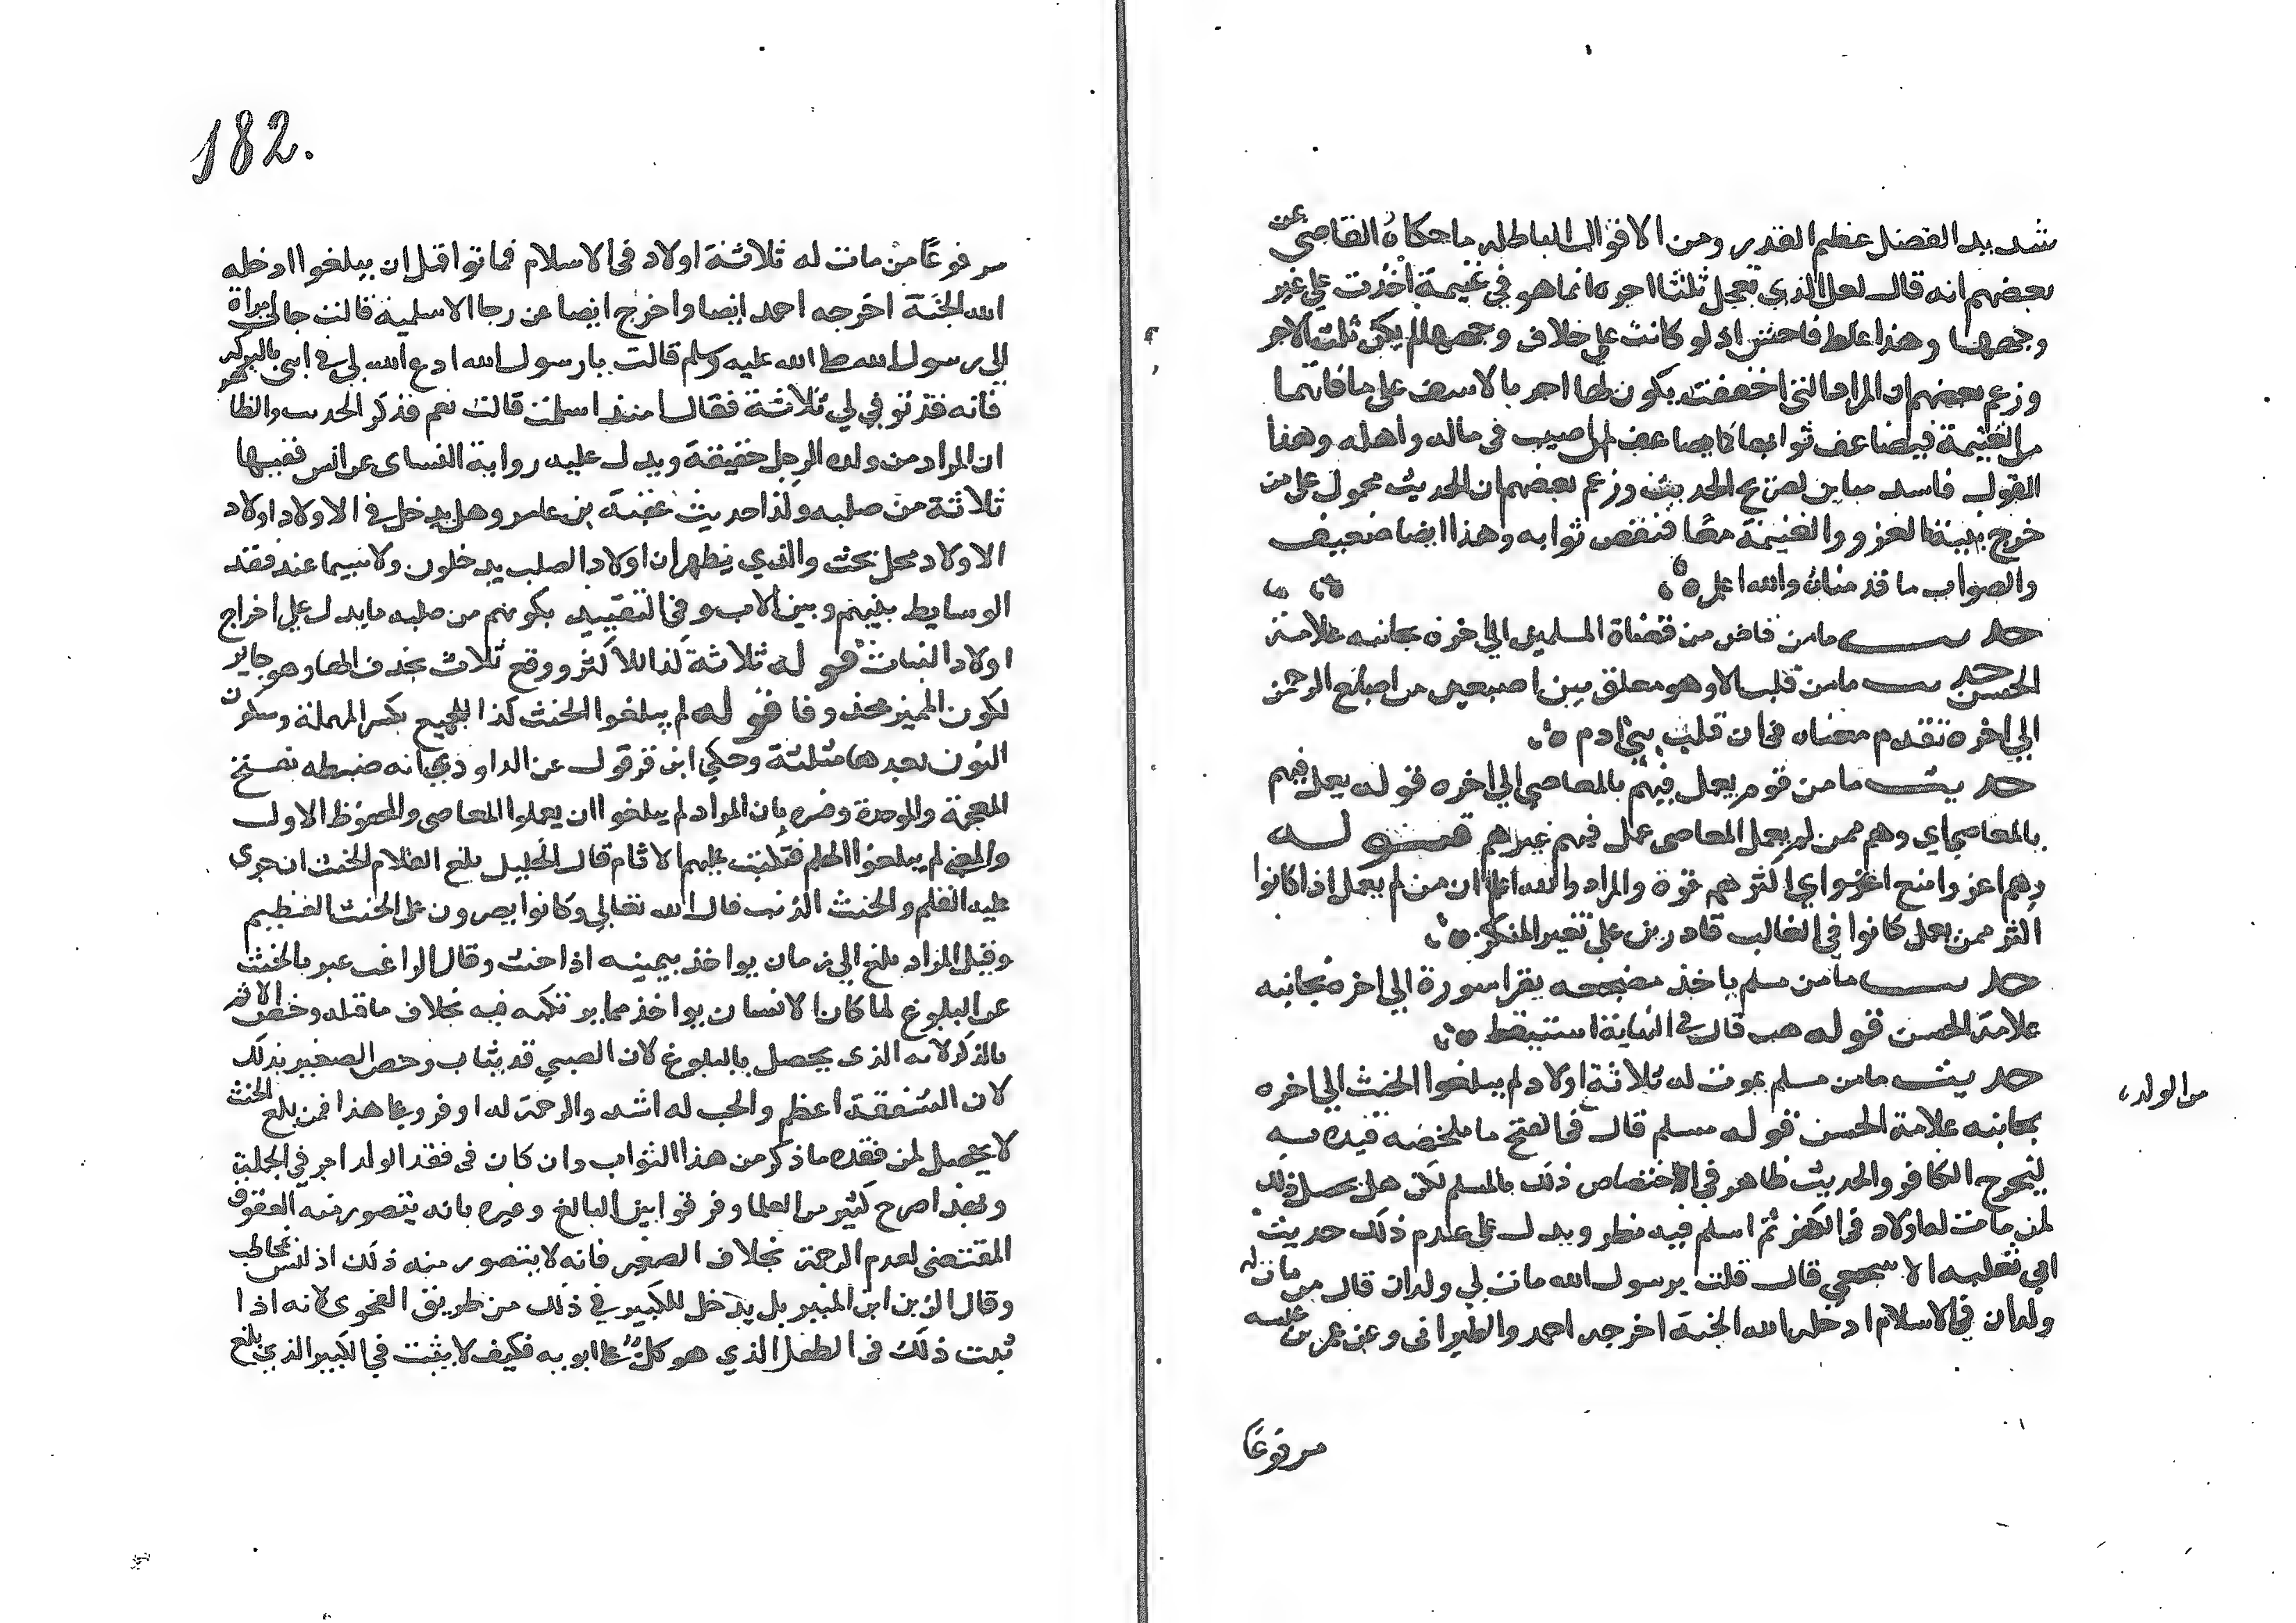 شديد الفضل عظيم القدر ومن الاقوال الباطله ما حكاه القاضي عن
بعضهم انه قال لعل الذي تعجل ثلثا اجره انما هو في غنيمة اخذت علي غير
وجهها وهذا غلط فاحش اذ لو كانت علي خلاف وجهها لم يكن ثلث الاجر
وزعم بعضهم ان المراد ان التي اخفقت يكون لها اجر بالاسف علي ما فاتها
من الغنيمة فيضاعف ثوابها كما يضاعف لمن اصيب في ماله واهله وهذا
القول فاسد مباين لصريح الحديث وزعم بعضهم ان الحديث محمول علي من
خرج بنية الغزو والغنيمة معًا فنقص ثوابه وهذا ايضا ضعيف
والصواب ما قدمناه والله اعلم ه
حديث ما من قاض من قضاة المسلمين الي اخره بجانبه علامة
الحسن حديث ما من قلب الا وهو معلق بين اصبعين من اصابع الرحمن
الي اخره تقدم معناه في ان قلب بني ادم ه
حديث ما من قوم يعمل فيهم بالمعاصي الي اخره قوله يعمل فيهم
بالمعاصي اي وهم ممن لم يعمل المعاصي عمل فيهم غيرهم قوله
وهم اعز وامنع اعزوا اي اكثرهم قوة والمراد والله اعلم ان من لم يعمل اذا كانوا
اكثر ممن يعمل كانوا في الغالب قادرين علي تغيير المنكر ه
حديث ما من مسلم ياخذ مضجعه يقرا سورة الي اخره بجانبه
علامة الحسن قوله هب قال في النهاية استيقظ ه
حديث ما من مسلم يموت له ثلاثة اولاد لم يبلغوا الحنث الي اخره
من الولد
بجانبه علامة الحسن قوله مسلم قال في الفتح ما ملخصه قيده به
ليخرج الكافر والحديث ظاهر في اختصاص ذلك بالمسلم لكن هل يحصل ذلك
لمن مات له اولاد في الكفر ثم اسلم فيه نظر ويدل علي عدم ذلك حديث
ابي ثعلبه الاشجعي قال قلت يرسول الله مات لي ولدان قال من مات له
ولدان في الاسلام ادخله الله الجنة اخرجه احمد والطبراني وعن عمرو بن عبسه
مرفوعًا
182.
مرفوعًا من مات له ثلاثة اولاد في الاسلام فماتوا قبل ان يبلغوا ادخله
الله الجنة اخرجه احمد ايضا واخرج ايضا عن رجا الاسلمية قالت جات امراة
الي رسول الله صلى الله عليه وسلم قالت يا رسول الله ادع الله لي في ابني بالبركه
فانه قد توفي لي ثلاثة فقال امنذ اسلمت قالت نعم فذكر الحديث والظاهر
ان المراد من ولده الرجل حقيقة ويدل عليه رواية النساى عن انس ففيها
ثلاثة من صلبه وكذا حديث عقبة بن عامر وهل يدخل في الاولاد اولاد
الاولاد محل بحث والذي يظهر ان اولاد الصلب يدخلون ولا سيما عند فقد
الوسايط بينهم وبين الاب وفي التقييد بكونهم من صلبه ما يدل علي اخراج
اولاد البنات قوله ثلاثة كذا للاكثر ووقع ثلاث بحذف الها وهو جايز
لكون المميز محذوفا قوله لم يبلغوا الحنث كذا للجميع بكسر المهملة وسكون
النون بعدها مثلثة وحكي ابن قرقول عن الداودي انه ضبطه بفتح
المعجمة والموحدة وفسره بان المراد لم يبلغوا ان يعملوا المعاصي والمحفوظ الاول
والمعني لم يبلغوا الحلم فتكتب عليهم الاثام قال الخليل بلغ الغلام الحنث ان جرى
عليه القلم والحنث الذنب قال الله تعالي وكانوا يصرون على الحنث العظيم
وقيل المراد بلغ الي زمان يواخذ بيمينه اذا حنث وقال الراغب عبر بالحنث
عن البلوغ لما كان الانسان يواخذ بما يرتكبه فيه بخلاف ما قبله وخص الاثم
بالذكر لانه الذي يحصل بالبلوغ لان الصبي قد يثاب وخص الصغير بذلك
لان الشفقة اعظم والحب له اشد والرحمة له اوفر وعلي هذا فمن بلغ الحنث
لا يحصل لمن فقده ما ذكر من هذا الثواب وان كان في فقد الولد اجر في الجملة
وبهذا صرح كثير من العلما وفرقوا بين البالغ وغيره بانه يتصور منه العقوق
المقتضى لعدم الرحمة بخلاف الصغير فانه لا يتصور منه ذلك اذ ليس بمخاطب
وقال الزين ابن المنير بل يدخل الكبير في ذلك من طريق الفحوى لانه اذا
ثبت ذلك في الطفل الذي هو كل على ابويه فكيف لا يثبت في الكبير الذي بلغ